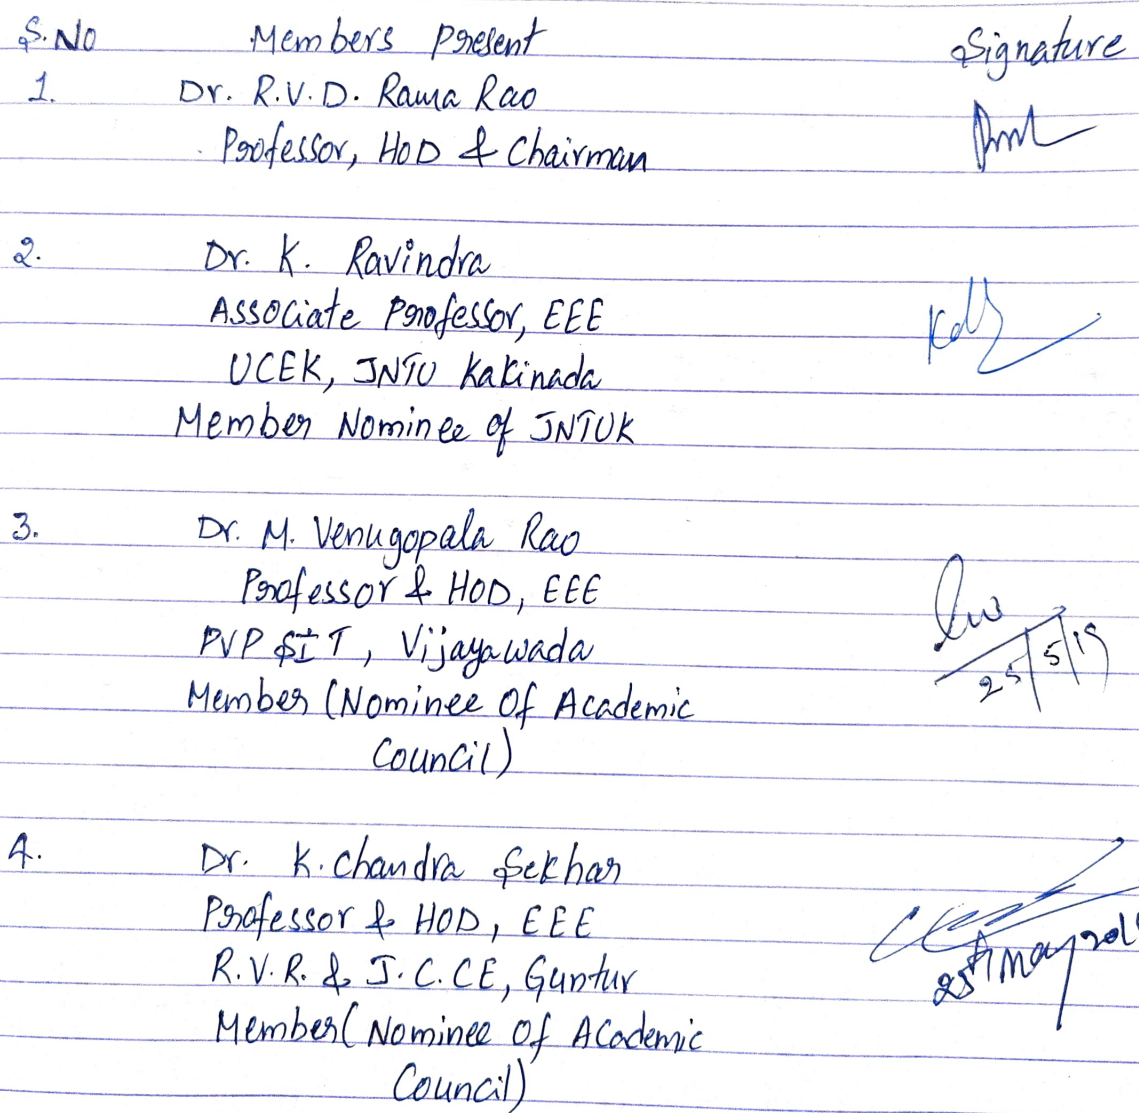 S.No Members Present Signature
1. Dr. R.V.D. Rama Rao
Professor, HOD & Chairman
2. Dr. K. Ravindra
Associate Professor, EEE
UCEK, JNTU Kakinada
Member Nominee of JNTUK
3. Dr. M. Venugopala Rao
Professor & HOD, EEE
PVP SIT, Vijayawada
25/5/19
Member (Nominee Of Academic
Council)
4. Dr. K. Chandra Sekhar
Professor & HOD, EEE
R.V.R. & J.C.CE, Guntur
25th May
Member (Nominee Of Academic
Council)